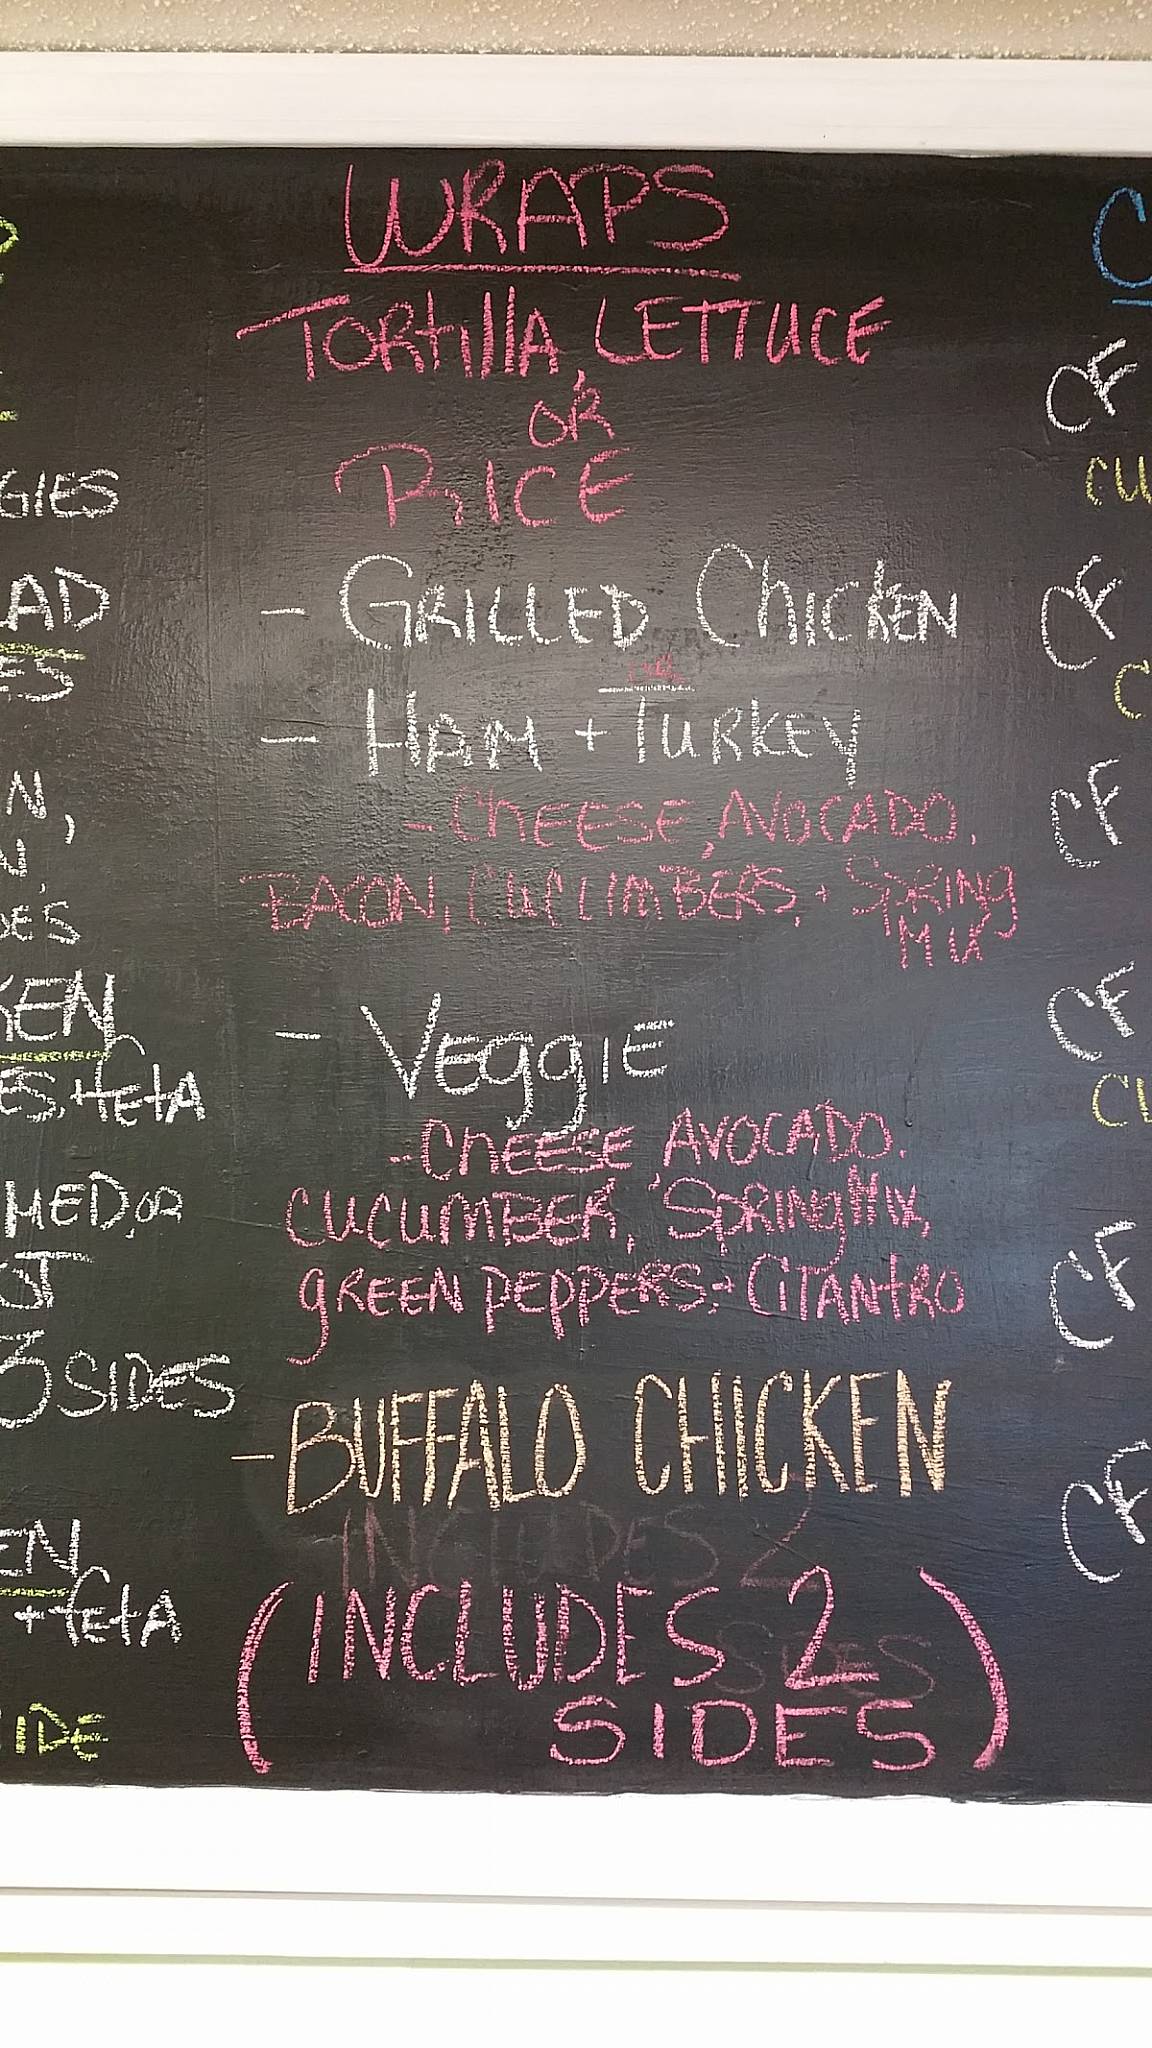 WRAPS
TORtillA, LETTUCE
OR
RICE
- GRILLED ChICKEN
- HAM + TURKEY
- ChEESE, AVOCADO,
BACON, CUCUMBERS, + SPRINg
MIX
- VEggIE
- ChEESE, AVOCADO,
CUCUMBER, SPRINg MIX,
gREEN PEPPERS, + CILANtRO
- BUFFALO CHICKEN
INCLUDES 2
(INCLUDES 2
SIDES
SIDES)
GIES
AD
ES
N,
N,
DES
KEN
ES, + FEtA
MED, OR
ST
3 SIDES
EN
+ FEtA
IDE
C
CF
CU
CF
C
CF
CF
CU
CF
CF